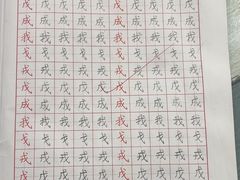 戊戊戊戊戊戊戊戊戊戊
成成成成成成成成成成
我我我我我我我我我我
戈戈戈戈戈戈戈戈戈戈
戎戎戎戎戎戎戎戎戎戎
戊戊戊戊戊戊戊戊戊戊
成成成成成成成成成成
我我我我我我我我我我
戈戈戈戈戈戈戈戈戈戈
戎戎戎戎戎戎戎戎戎戎